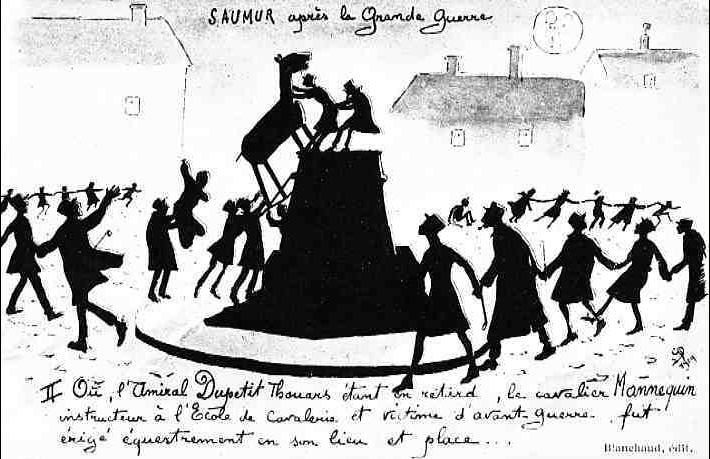 SAUMUR après la Grande Guerre
II Où, l'Amiral Dupetit Thouars étant en retard, le cavalier Mannequin
instructeur à l'École de Cavalerie et victime d'avant-guerre fut
érigé équestrement en son lieu et place...
Blanchaud, édit.